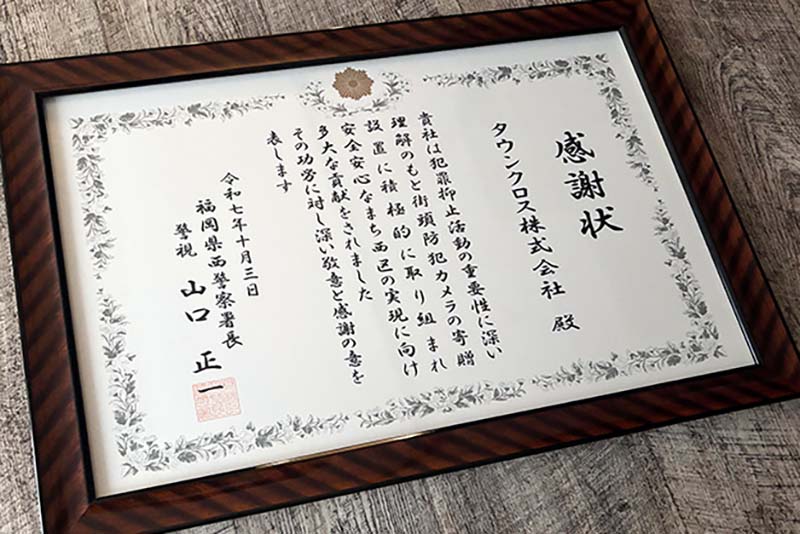 感謝状
タウンクロス株式会社 殿
貴社は犯罪抑止活動の重要性に深い
理解のもと街頭防犯カメラの寄贈
設置に積極的に取り組まれ
安全安心なまち西区の実現に向け
多大な貢献をされました
その功労に対し深い敬意と感謝の意を
表します
令和七年十月三日
福岡県西警察署長
警視 山口正一